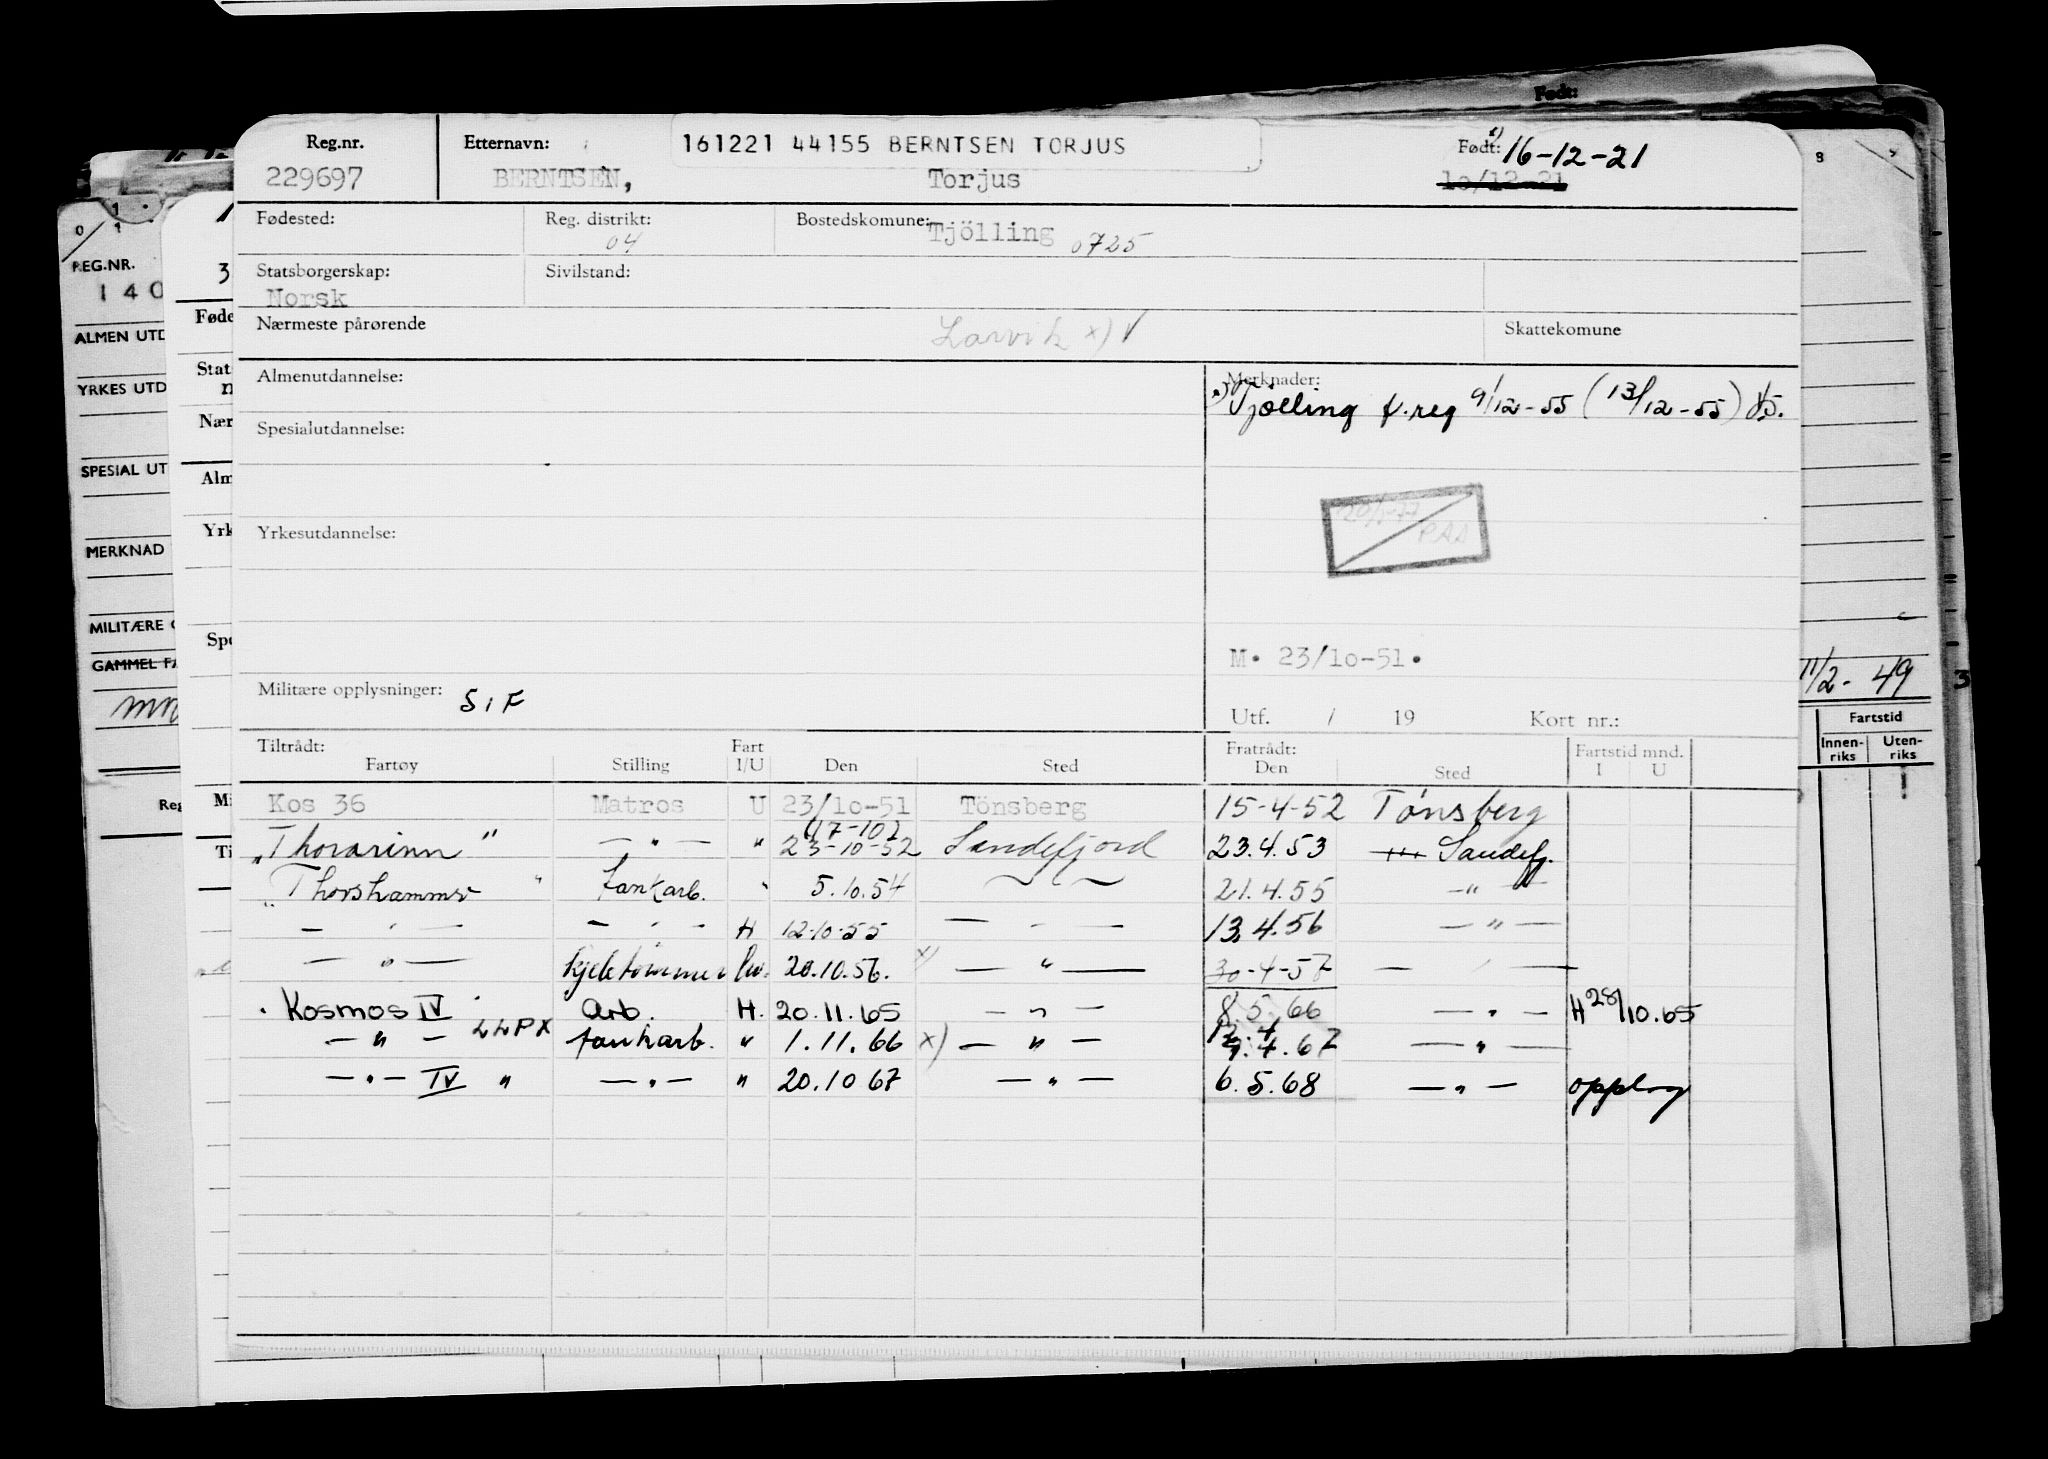 Født:
Reg.nr. Etternavn: 161221 44155 BERNTSEN TORJUS Født: 16-12-21
229697 BERNTSEN, Torjus 10/12-21
Fødested: Reg. distrikt: 04 Bostedskomune: Tjölling 0725
Statsborgerskap: Sivilstand:
Norsk
Nærmeste pårørende Larvik x) V Skattekomune
Almenutdannelse: Merknader:
x) Tjølling f.reg 9/12-55 (13/12-55)
Spesialutdannelse:
Yrkesutdannelse:
M. 23/10-51.
Militære opplysninger: S i F
Utf. / 19 Kort nr.:
Tiltrådt: Fart Fratrådt: Fartstid mnd.
Fartøy Stilling I/U Den Sted Den Sted I U
Kos 36 Matros U 23/10-51 Tönsberg 15-4-52 Tönsberg
"Thorarinn" — " — " 23-10-52 Sandefjord 23.4.53 Sandefj.
"Thorshammer" tankarb. " 5.10.54 21.4.55 — " —
— " — — " — H 12-10-55 — " — 13.4.56 — " —
— " — kjeletømmer 20.10.56. x) — " — 30-4-57 — " —
Kosmos IV Arb. H. 20.11.65 — " — 8.5.66 — " — H 28/10.65
— " — LLPX tankarb. " 1.11.66 x) — " — 4.67 — " —
— " — IV " — " — " 20.10 67 — " — 6.5.68 — " — opplag
REG.NR.
140
ALMEN UTD
YRKES UTD
SPESIAL UT
MERKNAD
MILITÆRE
GAMMEL FA
Reg
3
Føde
Stat
Nær
Alm
Yrk
Spe
Mi
Ti
8
11/2 - 49 3
Fartstid
Innen-
riks
Uten-
riks